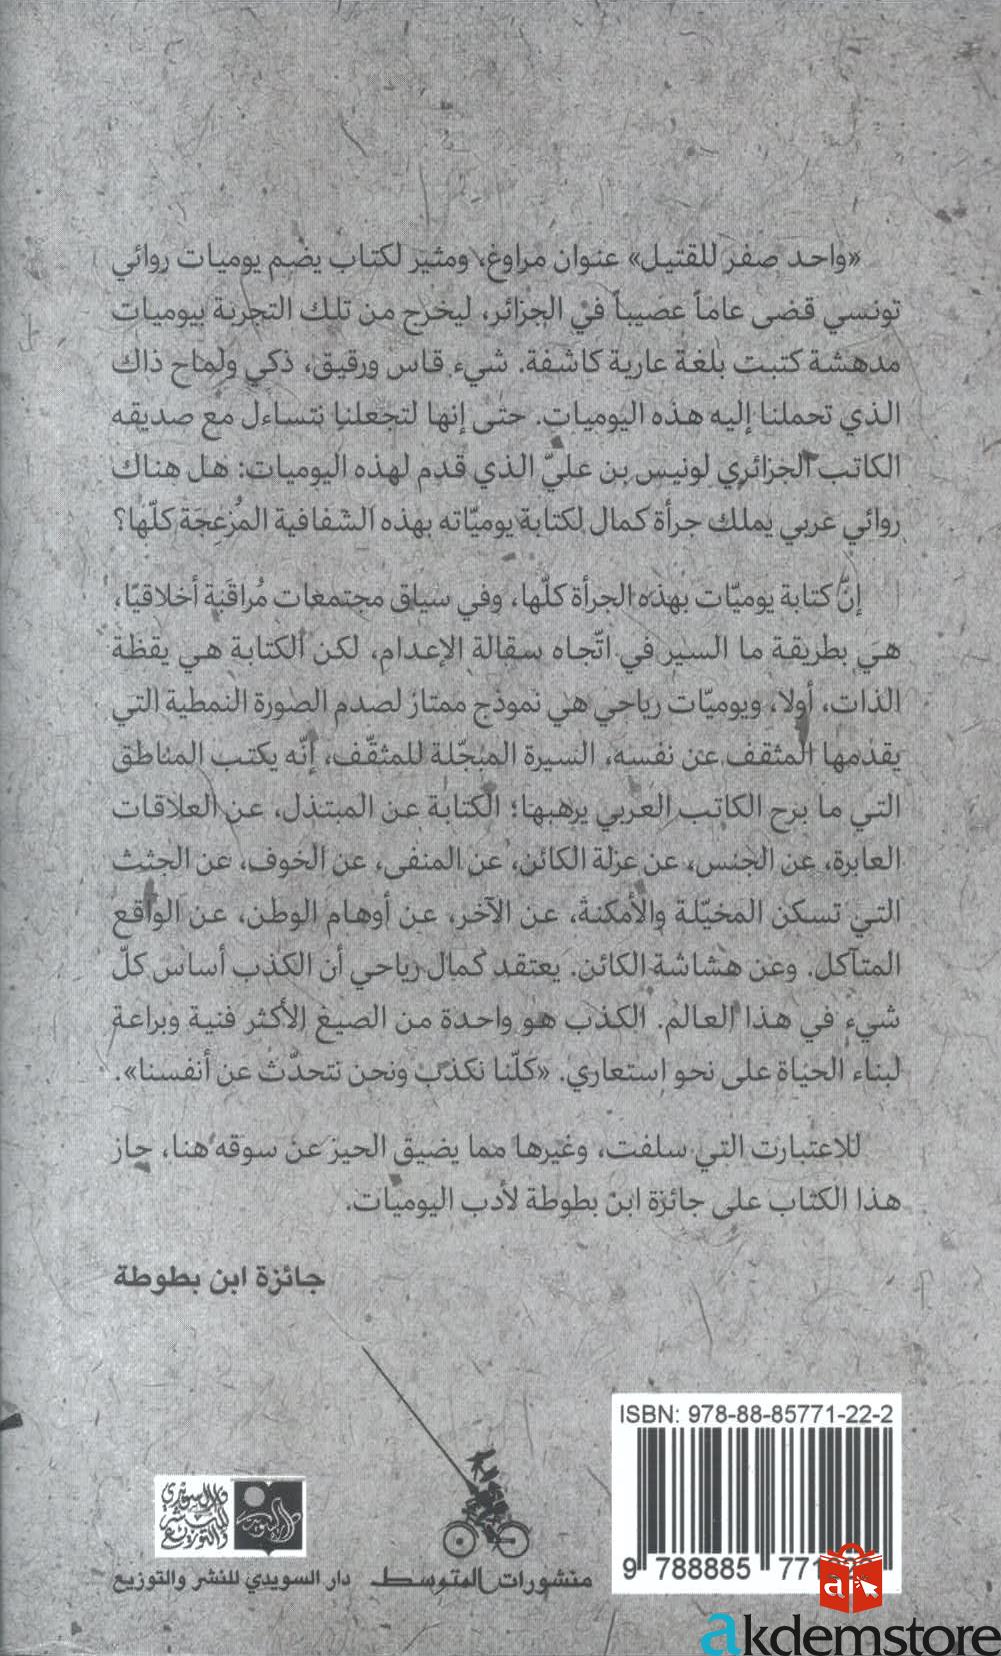 «واحد صفر للقتيل» عنوان مراوغ، ومثير لكتاب يضم يوميات روائي
تونسي قضى عاماً عصيباً في الجزائر، ليخرج من تلك التجربة بيوميات
مدهشة كتبت بلغة عارية كاشفة. شيء قاس ورقيق، ذكي ولماح ذاك
الذي تحملنا إليه هذه اليوميات. حتى إنها لتجعلنا نتساءل مع صديقه
الكاتب الجزائري لونيس بن عليّ الذي قدم لهذه اليوميات: هل هناك
روائي عربي يملك جرأة كمال لكتابة يوميّاته بهذه الشفافية المُزعِجَة كلّها؟
إنّ كتابة يوميّات بهذه الجرأة كلّها، وفي سياق مجتمعات مُراقَبَة أخلاقيًا،
هيَ بطريقة ما السير في اتّجاه سقالة الإعدام، لكن الكتابة هي يقظة
الذات، أولا، ويوميّات رياحي هي نموذج ممتاز لصدم الصورة النمطية التي
يقدمها المثقف عن نفسه، السيرة المبجّلة للمثقّف، إنّه يكتب المناطق
التي ما برح الكاتب العربي يرهبها؛ الكتابة عن المبتذل، عن العلاقات
العابرة، عن الجنس، عن عزلة الكائن، عن المنفى، عن الخوف، عن الجثث
التي تسكن المخيّلة والأمكنة، عن الآخر، عن أوهام الوطن، عن الواقع
المتآكل. وعن هشاشة الكائن. يعتقد كمال رياحي أن الكذب أساس كلّ
شيء في هذا العالم. الكذب هو واحدة من الصيغ الأكثر فنية وبراعة
لبناء الحياة على نحو استعاري. «كلّنا نكذب ونحن نتحدّث عن أنفسنا».
للاعتبارت التي سلفت، وغيرها مما يضيق الحيز عن سوقه هنا، حاز
هذا الكتاب على جائزة ابن بطوطة لأدب اليوميات.
جائزة ابن بطوطة
ISBN: 978-88-85771-22-2
9 788885 771
دار السويدي
للنشر
والتوزيع
منشورات المتوسط
دار السويدي للنشر والتوزيع
a
akdemstore